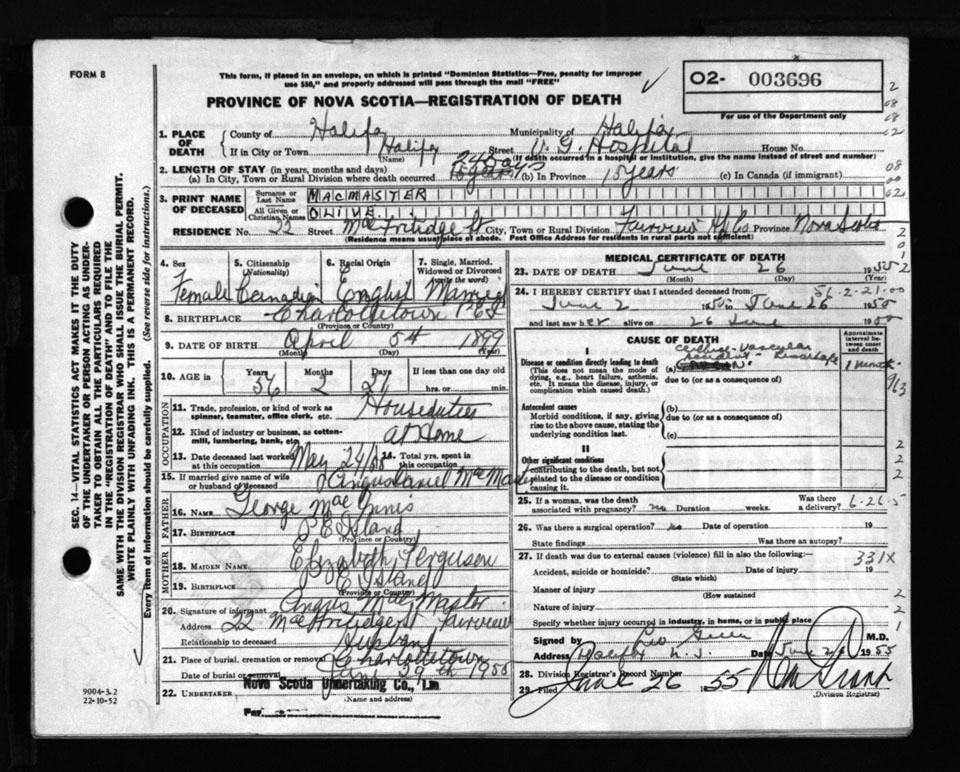 FORM 8
This form, if placed in an envelope, on which is printed "Dominion Statistics—Free, penalty for improper
use $50," and properly addressed will pass through the mail "FREE"
O2- 003696
For use of the Department only
PROVINCE OF NOVA SCOTIA—REGISTRATION OF DEATH
1. PLACE OF DEATH
County of Halifax Municipality of Halifax
If in City or Town Halifax (Name) Street V. G. Hospital House No.
(If death occurred in a hospital or institution, give the name instead of street and number)
2. LENGTH OF STAY (in years, months and days)
(a) In City, Town or Rural Division where death occurred 24 Days (b) In Province 15 years (c) In Canada (if immigrant)
3. PRINT NAME OF DECEASED
Surname or Last Name MACMASTER
All Given or Christian Names OLIVE
RESIDENCE No. 22 Street St City, Town or Rural Division Fairview Hfx Co Province Nova Scotia
(Residence means usual place of abode. Post Office Address for residents in rural parts not sufficient)
4. Sex Female
5. Citizenship (Nationality) Canadian
6. Racial Origin English
7. Single, Married, Widowed or Divorced (write the word) Married
8. BIRTHPLACE Charlottetown P E I
(Province or Country)
9. DATE OF BIRTH April 5th 1899
(Month) (Day) (Year)
10. AGE in Years 56 Months 2 Days 21 If less than one day old hrs. or min.
OCCUPATION
11. Trade, profession, or kind of work as spinner, teamster, office clerk, etc. Houseduties
12. Kind of industry or business, as cotton-mill, lumbering, bank, etc. at Home
13. Date deceased last worked at this occupation May 24/55 14. Total yrs. spent in this occupation
15. If married give name of wife or husband of deceased Angus Daniel MacMaster
FATHER
16. NAME George MacGinis
17. BIRTHPLACE P E Island
(Province or Country)
MOTHER
18. MAIDEN NAME Elizabeth Ferguson
19. BIRTHPLACE P E Island
(Province or Country)
20. Signature of informant Angus MacMaster
Address 22 Fairview
Relationship to deceased Husband
21. Place of burial, cremation or removal Charlottetown
Date of burial or removal 29th 1955
22. UNDERTAKER Nova Scotia Undertaking Co., Ltd.
(Name and address)
Per
9004-3.2
22-10-52
SEC. 14—VITAL STATISTICS ACT MAKES IT THE DUTY
OF THE UNDERTAKER OR PERSON ACTING AS UNDER-
TAKER TO OBTAIN ALL THE PARTICULARS REQUIRED
IN THE "REGISTRATION OF DEATH" AND TO FILE THE
SAME WITH THE DIVISION REGISTRAR WHO SHALL ISSUE THE BURIAL PERMIT.
WRITE PLAINLY WITH UNFADING INK. THIS IS A PERMANENT RECORD.
Every item of information should be carefully supplied. (See reverse side for instructions.)
MEDICAL CERTIFICATE OF DEATH
23. DATE OF DEATH June 26 1955
(Month) (Day) (Year)
24. I HEREBY CERTIFY that I attended deceased from
June 2 1955 to June 26 1955
and last saw her alive on 26 June 1955
CAUSE OF DEATH
Approximate interval between onset and death
I
Disease or condition directly leading to death
(This does not mean the mode of dying, e.g., heart failure, asthenia, etc. It means the disease, injury, or complication which caused death.)
(a) Cerebro-vascular accident - hemorrhage 1 month
due to (or as a consequence of)
Antecedent causes
Morbid conditions, if any, giving rise to the above cause, stating the underlying condition last.
(b)
due to (or as a consequence of)
(c)
II
Other significant conditions
contributing to the death, but not related to the disease or condition causing it.
25. If a woman, was the death associated with pregnancy? no Duration weeks. Was there a delivery?
6-26-5
26. Was there a surgical operation? no Date of operation 19
State findings Was there an autopsy?
27. If death was due to external causes (violence) fill in also the following: 331X
Accident, suicide or homicide? (State which) Date of injury 19
Manner of injury (How sustained)
Nature of injury
Specify whether injury occurred in industry, in home, or in public place
Signed by Leo Green M.D.
Address Halifax N.S. Date June 26 1955
28. Division Registrar's Record Number
29. Filed June 26 1955
(Division Registrar)